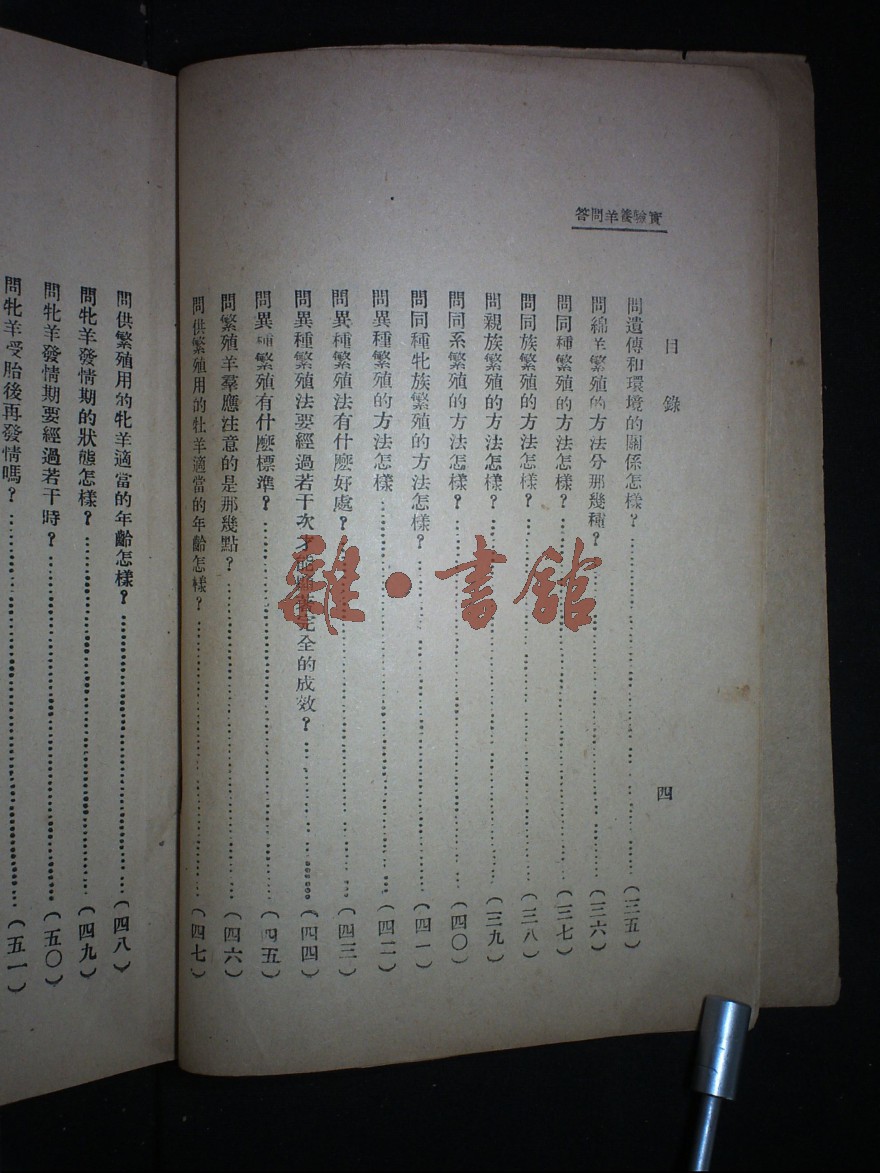 實驗養羊問答
目錄
四
問遺傳和環境的關係怎樣？……（三五）
問綿羊繁殖的方法分那幾種？……（三六）
問同種繁殖的方法怎樣？……（三七）
問同族繁殖的方法怎樣？……（三八）
問親族繁殖的方法怎樣？……（三九）
問同系繁殖的方法怎樣？……（四〇）
問同種牝族繁殖的方法怎樣？……（四一）
問異種繁殖的方法怎樣……（四二）
問異種繁殖法有什麽好處？……（四三）
問異種繁殖法要經過若干次才能顯著完全的成效？……（四四）
問異種繁殖有什麽標準？……（四五）
問繁殖羊羣應注意的是那幾點？……（四六）
問供繁殖用的牡羊適當的年齡怎樣？……（四七）
問供繁殖用的牝羊適當的年齡怎樣？……（四八）
問牝羊發情期的狀態怎樣？……（四九）
問牝羊發情期要經過若干時？……（五〇）
問牝羊受胎後再發情嗎？……（五一）
雜·書館